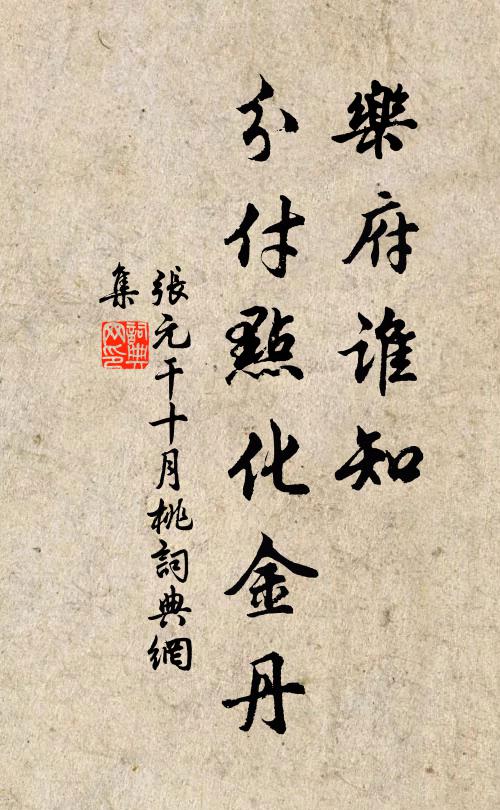 樂府誰知
分付點化金丹
張元干十月桃詞典網
集
詞典網印